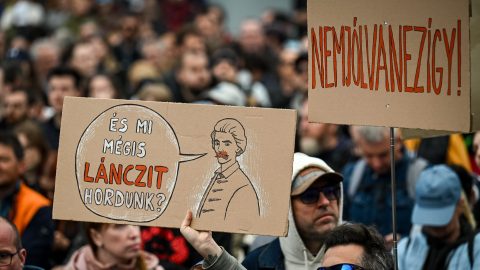 ÉS MI
MÉGIS
LÁNCZIT
HORDUNK?
NEMJÓLVANEZÍGY!